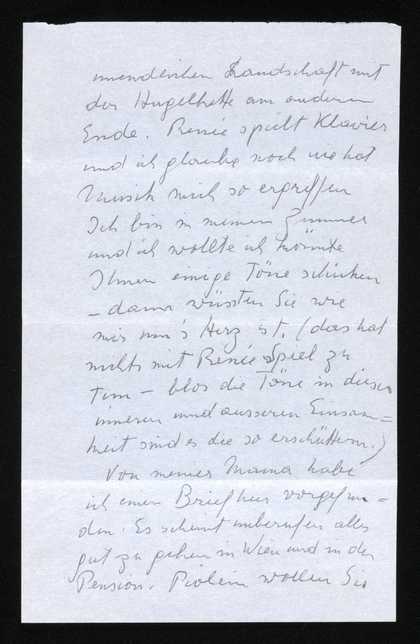 unendlichen Landschaft mit
der Hügelkette am anderen
Ende. Renée spielt Klavier
und ich glaube noch nie hat
Musik mich so ergriffen
Ich bin in meinem Zimmer
und ich wollte ich könnte
Ihnen einige Töne schicken
– dann wüssten Sie wie
mir um's Herz ist. (das hat
nichts mit Renée Spiel zu
tun – blos die Töne in dieser
inneren und äusseren Einsam=
keit sind es die so erschüttern.)
Von meiner Mama habe
ich einen Brief hier vorgefun=
den. Es scheint unberufen alles
gut zu gehen in Wien und in der
Pension. wollen Sie